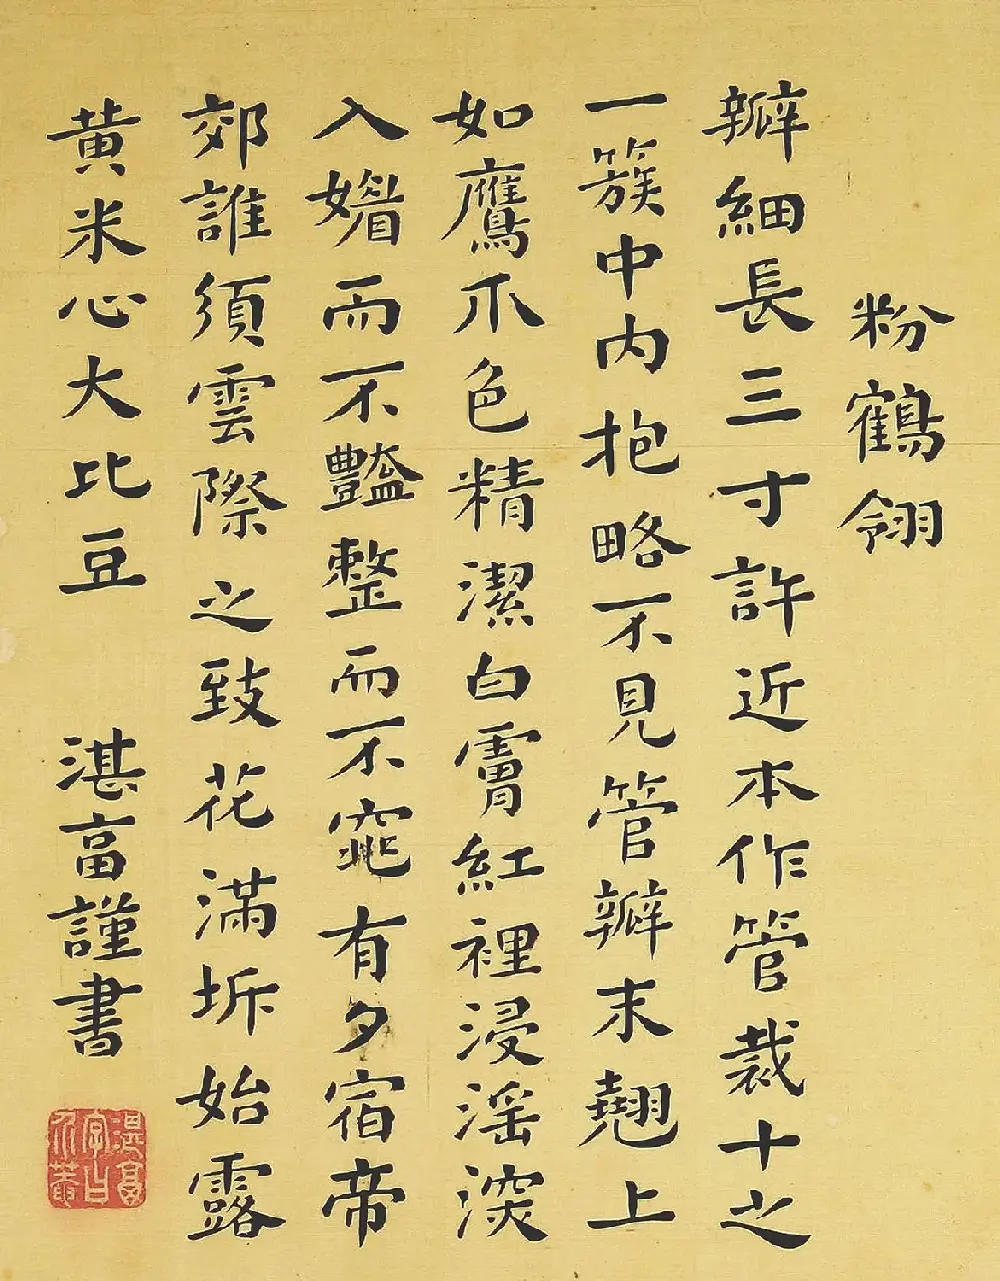 粉鶴翎
瓣細長三寸許近本作管裁十之
一簇中内抱略不見管瓣末翹上
如鷹爪色精潔白霄紅裡浸滛深
入媚而不豔整而不窕有夕宿帝
郊誰須雲際之致花滿坼始露
黄米心大比豆　湛富謹書